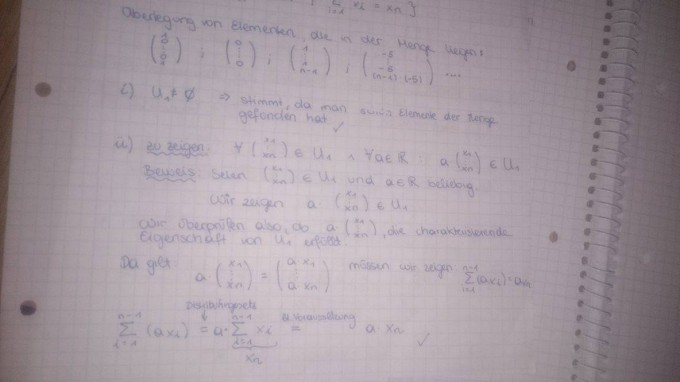 ∑ᵢ₌₁ xᵢ = xₙ }
Überlegung von Elementen, die in der Menge liegen:
(1 0 ⋮ 0 1) , (0 0 ⋮ 0) , (1 ⋮ 1 n-1) , (-5 ⋮ -5 (n-1)·(-5)) ...
i) U₁ ≠ ∅ ⇒ stimmt, da man Elemente der Menge
gefunden hat ✓
ii) zu zeigen: ∀ (x₁ ⋮ xₙ) ∈ U₁ ∧ ∀a∈ℝ : a (x₁ ⋮ xₙ) ∈ U₁
Beweis: Seien (x₁ ⋮ xₙ) ∈ U₁ und a∈ℝ beliebig.
Wir zeigen a · (x₁ ⋮ xₙ) ∈ U₁
Wir überprüfen also, ob a (x₁ ⋮ xₙ), die charakterisierende
Eigenschaft von U₁ erfüllt
Da gilt: a (x₁ ⋮ xₙ) = (a·x₁ ⋮ a·xₙ) müssen wir zeigen: ∑ᵢ₌₁ⁿ⁻¹ (axᵢ) = axₙ
Distributivgesetz n. Voraussetzung
∑ᵢ₌₁ⁿ⁻¹ (axᵢ) = a·∑ᵢ₌₁ⁿ⁻¹ xᵢ = a xₙ ✓
xₙ